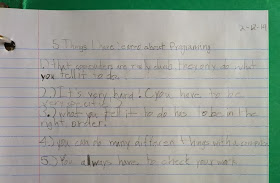 2-12-14
5 Things I have learned about Programing
1.) That computers are really dumb they only do what
you tell it to do.
2.) It's very hard. (you have to be
very specific)
3.) what you tell it to do has to be in the
right order.
4.) you can do many different things with a computer
5.) You always have to check your work.